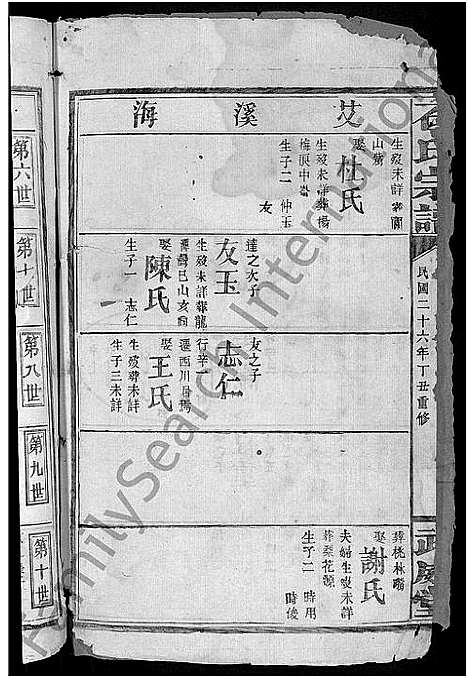 艾溪海
生歿未詳葬
山
娶杜氏
生歿未詳葬楊
梅
生子二 仲玉
友
達之次子
友玉
生歿未詳葬龍
山亥
娶陳氏
生子一 志仁
友之子
志仁
行辛一
遷西川
娶王氏
生歿葬未詳
生子三未詳
葬桃林
娶謝氏
夫婦生歿未詳
葬梨花源
生子二 時用
時俊
氏宗譜
民國二十六年丁丑重修
第六世
第七世
第八世
第九世
第十世
FamilySearch International